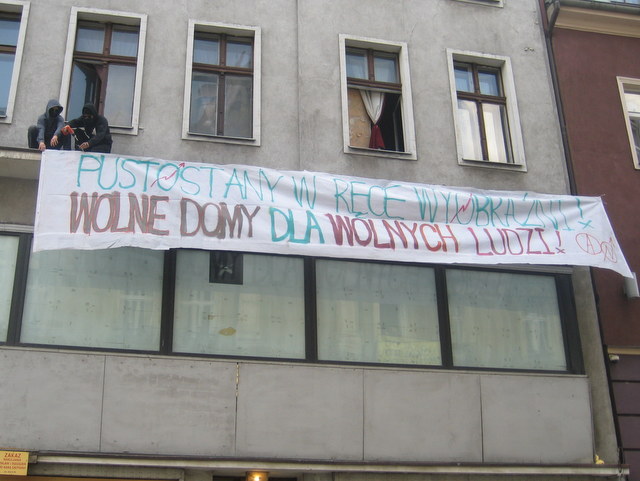 PUSTOSTANY W RĘCE WYOBRAŹNI!
WOLNE DOMY DLA WOLNYCH LUDZI!
ZAKAZ